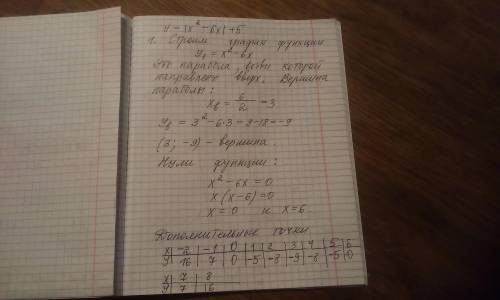 y = |x² - 6x| + 5
1. Строим график функции
y₁ = x² - 6x
Это парабола, ветви которой
направлены вверх. Вершина
параболы:
xв = 6/2 = 3
yв = 3² - 6·3 = 9 - 18 = -9
(3; -9) - вершина.
Нули функции:
x² - 6x = 0
x(x - 6) = 0
x = 0 и x = 6
Дополнительные точки
x | -2 | -1 | 0 | 1 | 2 | 3 | 4 | 5 | 6
y | 16 | 7 | 0 | -5 | -8 | -9 | -8 | -5 | 0
x | 7 | 8
y | 7 | 16